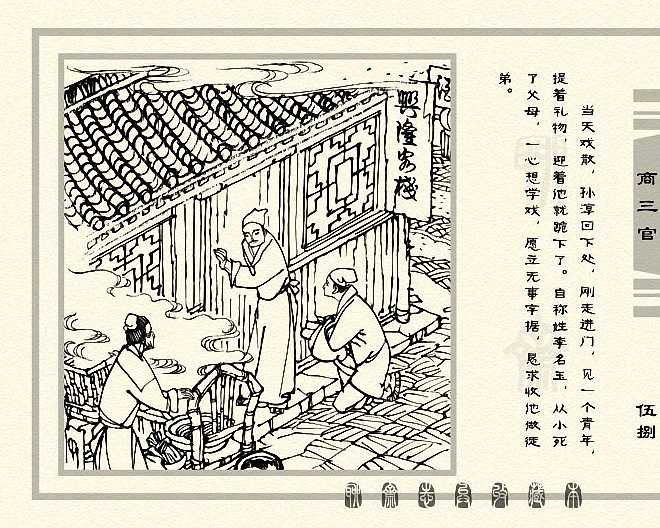 当天戏散，孙淳回下处，刚走进门，见一个青年，
提着礼物，迎着他就跪下了。自称姓李名玉，从小死
了父母，一心想学戏，愿立无事字据，恳求收他做徒
弟。
商三官
伍捌
兴隆客栈
酒